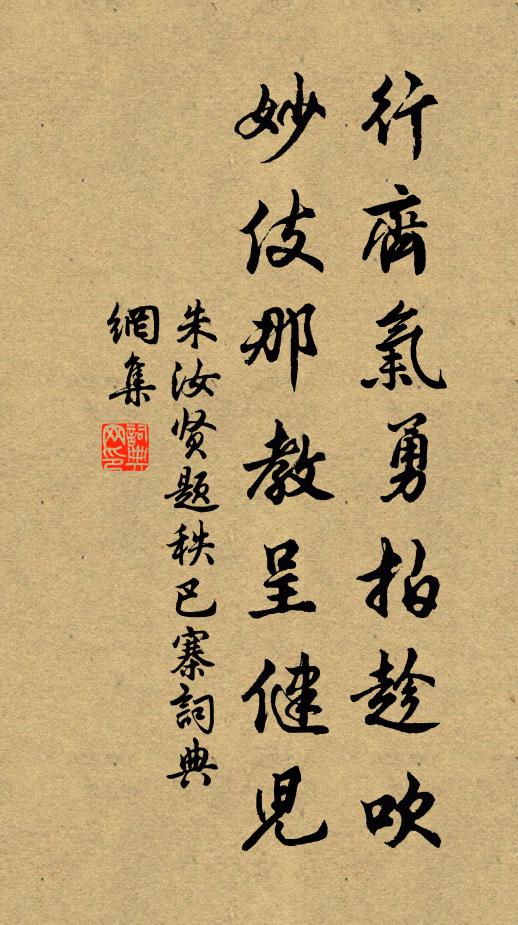 行齊氣勇拍趁吹
妙伎那教呈健児
朱汝贤题秩巴寨詞典
網集
詞典網印